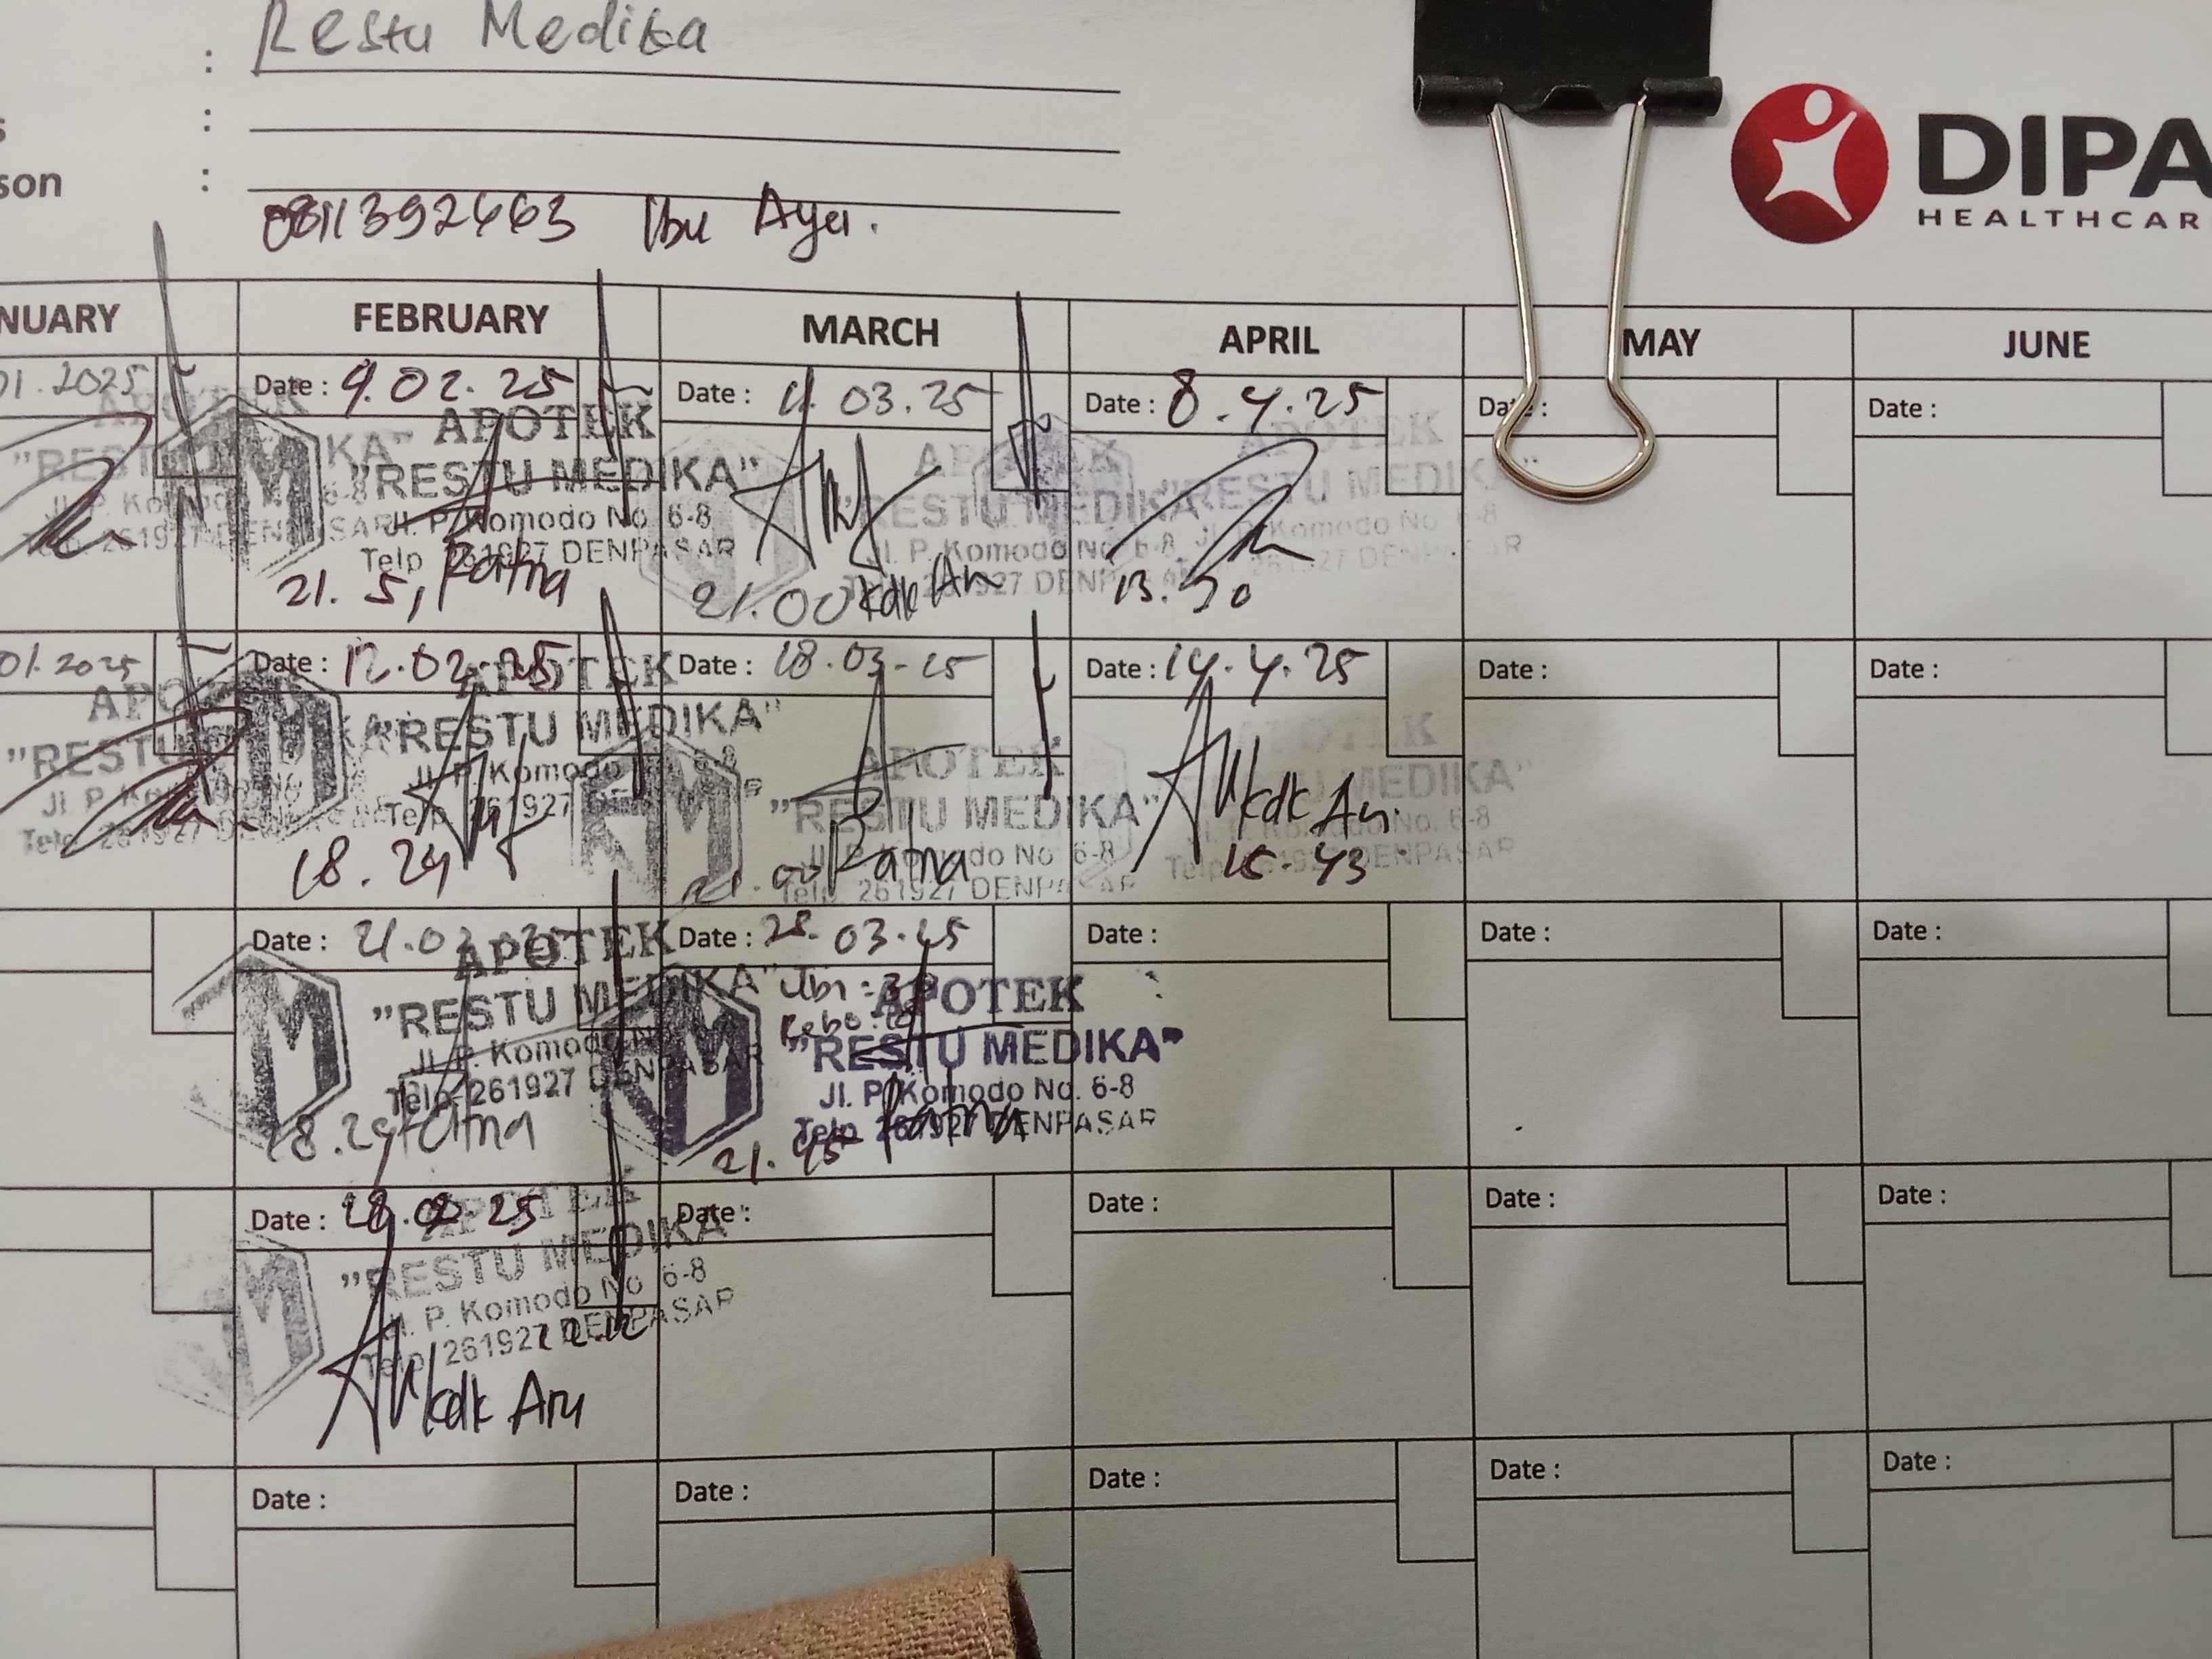 : Restu Medika
:
son :
0811392463 Ibu Ayu.
DIPA
HEALTHCAR
NUARY FEBRUARY MARCH APRIL MAY JUNE
01.2025 Date : 9.02.25 Date : 11.03.25 Date : 8.4.25 Date : Date :
APOTEK APOTEK APOTEK APOTEK
"RESTU MEDIKA" "RESTU MEDIKA" "RESTU MEDIKA" "RESTU MEDIKA"
Jl. P. Komodo No. 6-8 Jl. P. Komodo No. 6-8 Jl. P. Komodo No. 6-8 Jl. P. Komodo No. 6-8
Telp. 261927 DENPASAR Telp 261927 DENPASAR 261927 DENPASAR 261927 DENPASAR
Ratna 21.00 kdk Ari 13.30
01.2025 Date : 12.02.25 Date : 18.03.25 Date : 14.4.25 Date : Date :
APOTEK APOTEK APOTEK APOTEK
"RESTU MEDIKA" "RESTU MEDIKA" "RESTU MEDIKA" MEDIKA"
Jl. P. Komodo Jl. P. Komodo Jl. P. Komodo No. 6-8 Komodo No. 6-8
Telp. 261927 Telp. 261927 Telp. 261927 DENPASAR Telp. DENPASAR
18.24 Ratna kdk Ari 15.43
Date : 21.02.25 Date : 28.03.25 Date : Date : Date :
APOTEK APOTEK
"RESTU MEDIKA" "RESTU MEDIKA"
Jl. P. Komodo Jl. P. Komodo No. 6-8
Telp. 261927 DENPASAR Telp 261927 DENPASAR
18.24 Ratna 21.45 Ratna
Date : 28.02.25 Date : Date : Date : Date :
APOTEK
"RESTU MEDIKA"
Jl. P. Komodo No. 6-8
Telp. 261927 DENPASAR
kdk Ari
Date : Date : Date : Date : Date :